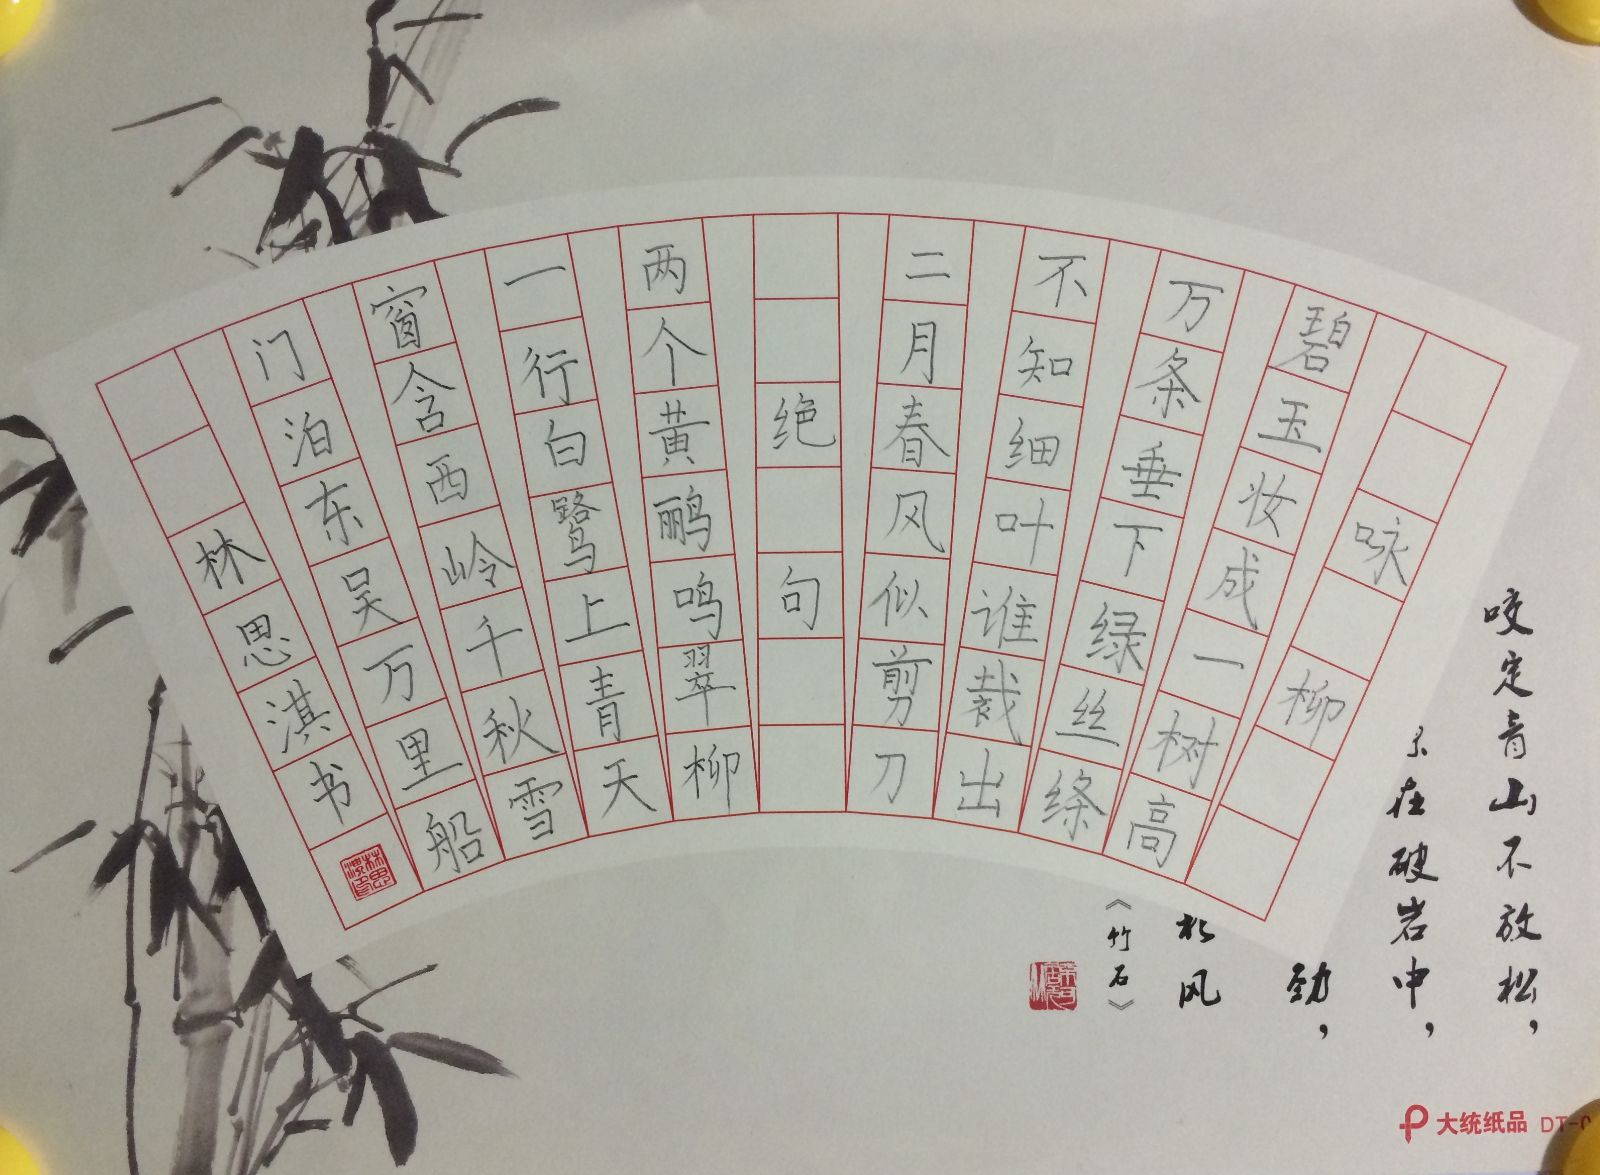 咏柳
碧玉妆成一树高
万条垂下绿丝绦
不知细叶谁裁出
二月春风似剪刀
绝句
两个黄鹂鸣翠柳
一行白鹭上青天
窗含西岭千秋雪
门泊东吴万里船
林思淇书
咬定青山不放松，
在破岩中，
劲，
风
《竹石》
大统纸品 DT-